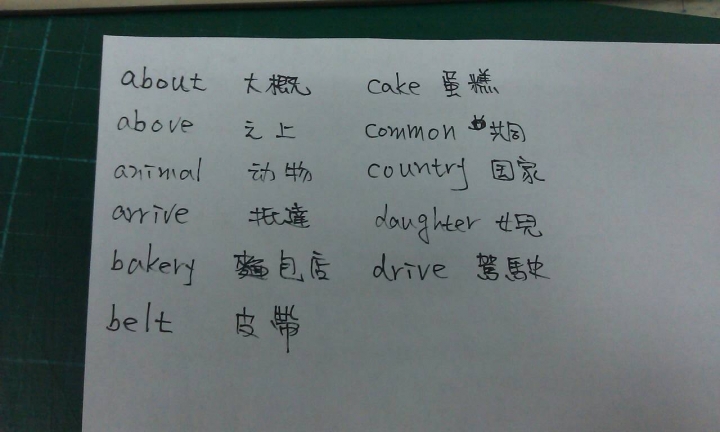 about 大概 cake 蛋糕
above 之上 common 共同
animal 动物 country 国家
arrive 抵達 daughter 女兒
bakery 麵包店 drive 駕駛
belt 皮帶